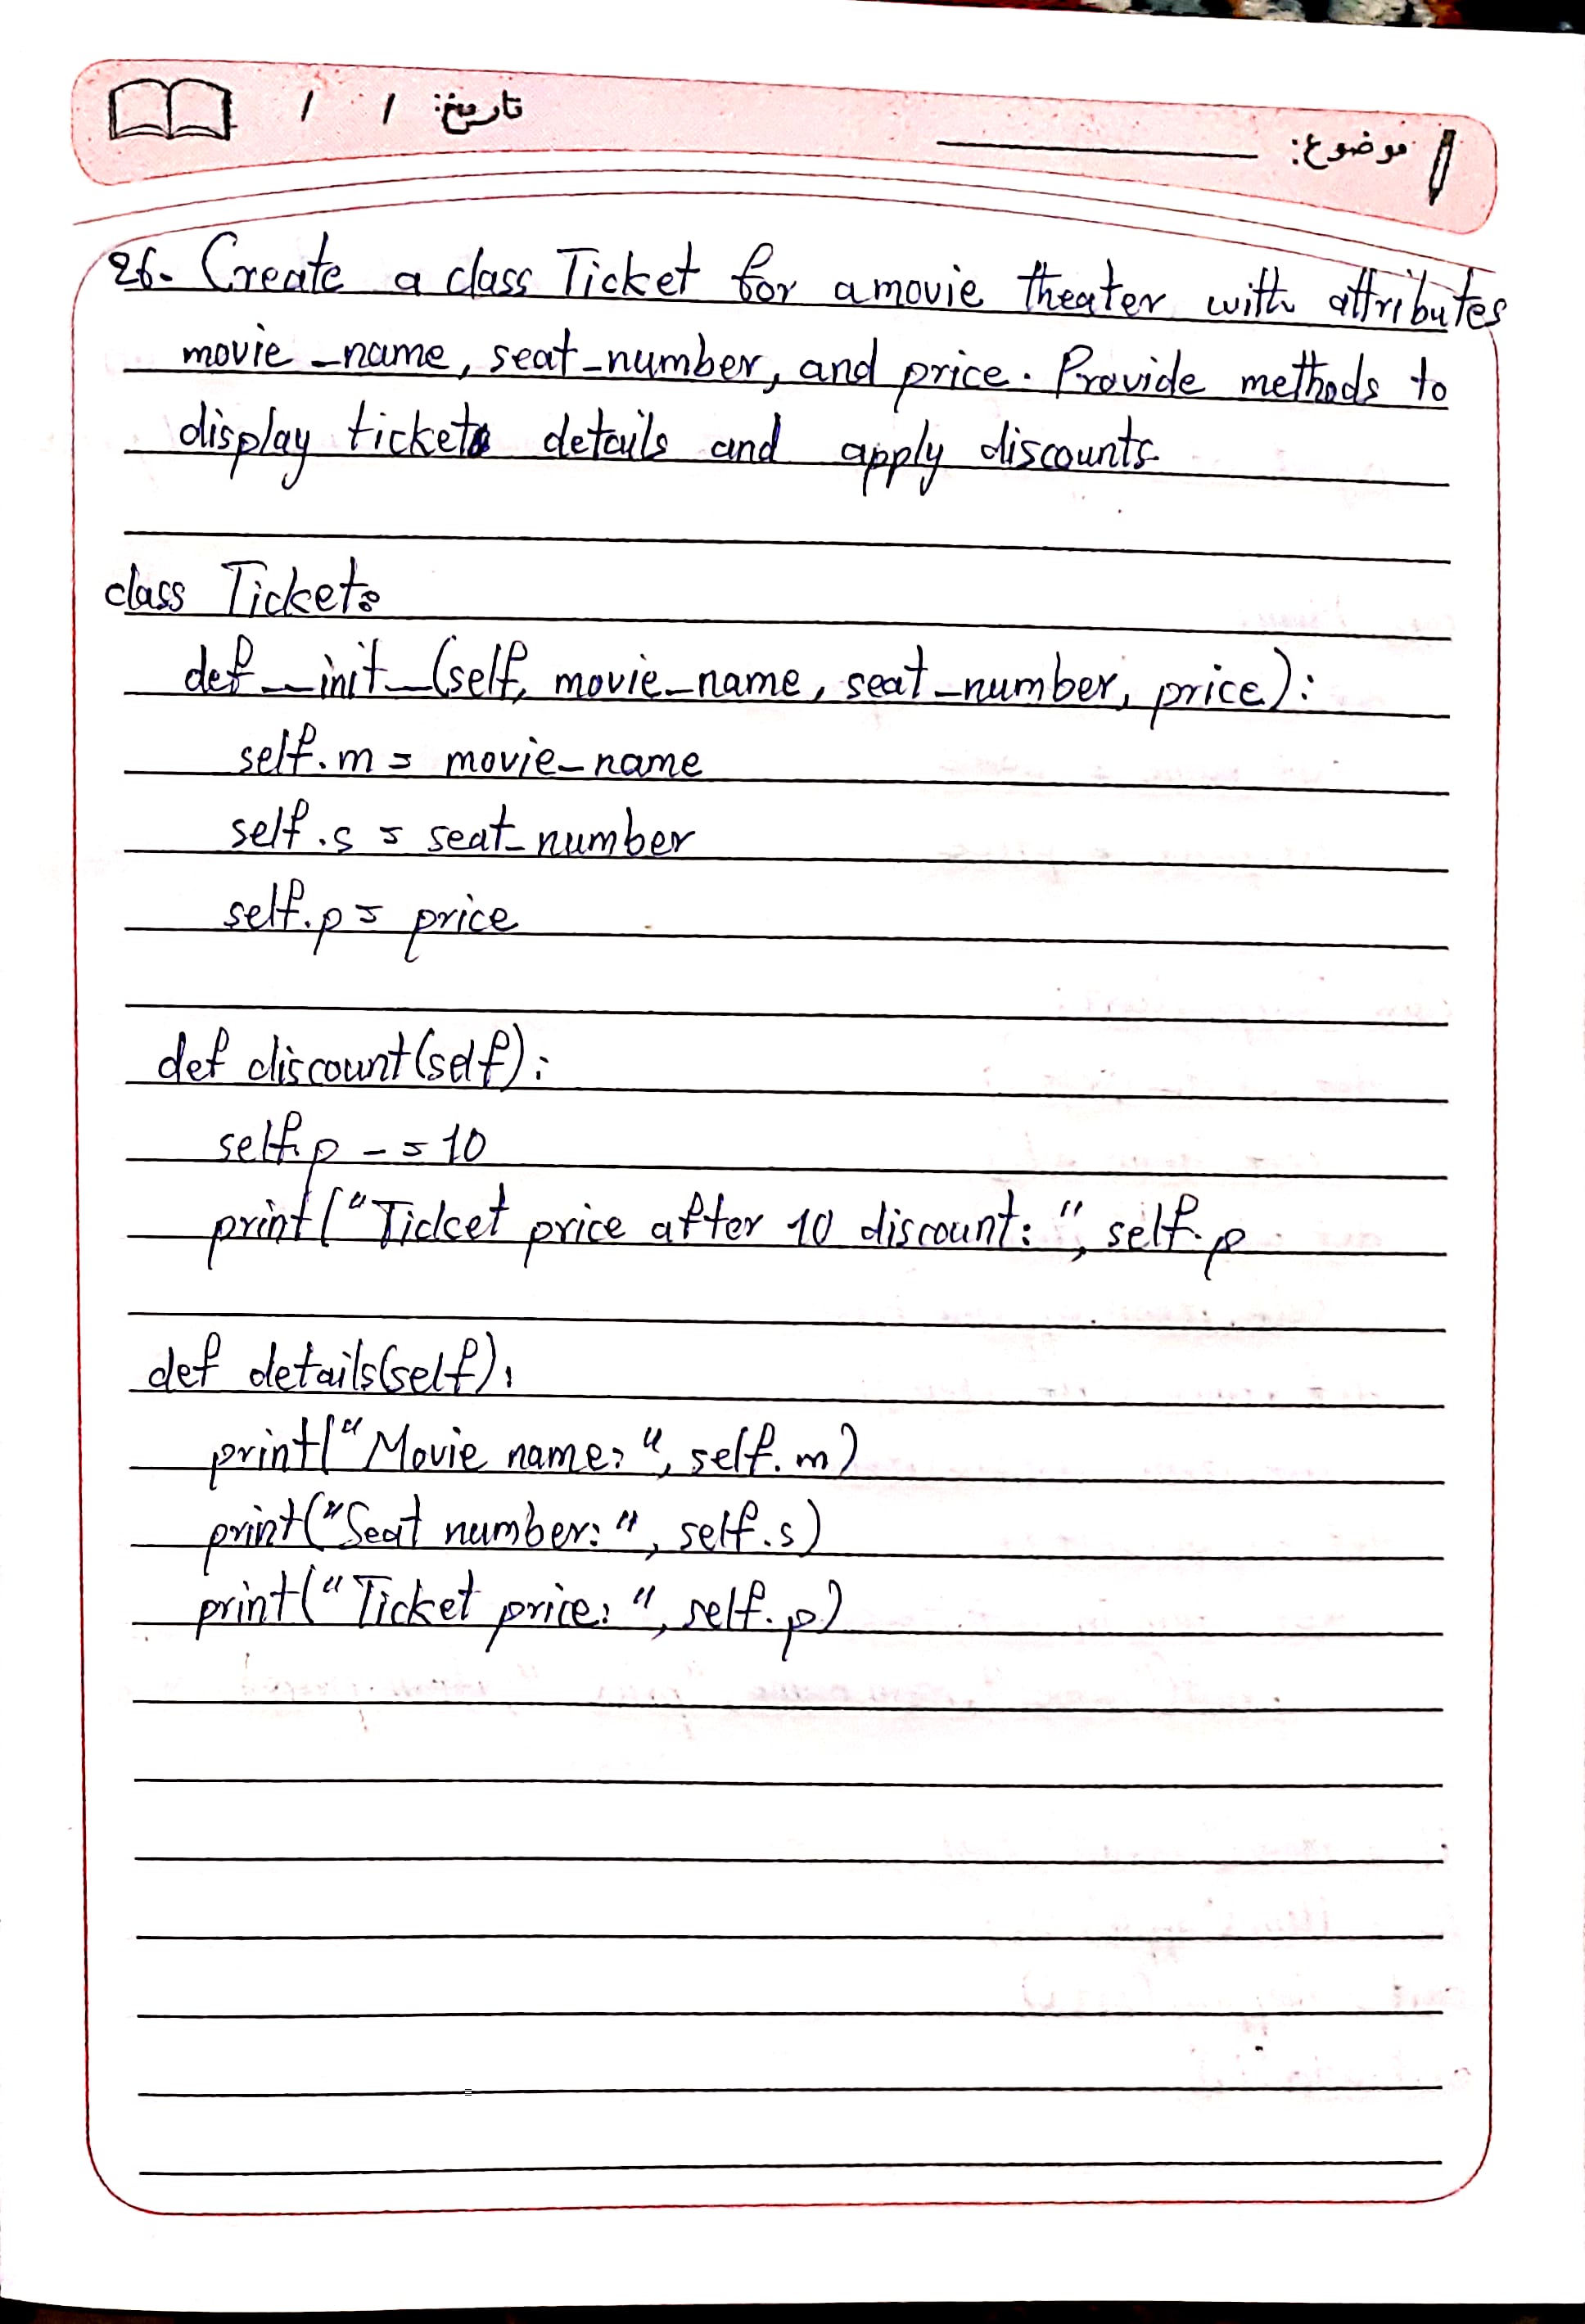 موضوع: تاریخ: / /
26- Create a class Ticket for a movie theater with attributes
movie_name, seat_number, and price. Provide methods to
display ticket details and apply discounts.
class Ticket:
def __init__(self, movie_name, seat_number, price):
self.m = movie_name
self.s = seat_number
self.p = price
def discount(self):
self.p -= 10
print("Ticket price after 10 discount: ", self.p
def details(self):
print("Movie name: ", self.m)
print("Seat number: ", self.s)
print("Ticket price: ", self.p)